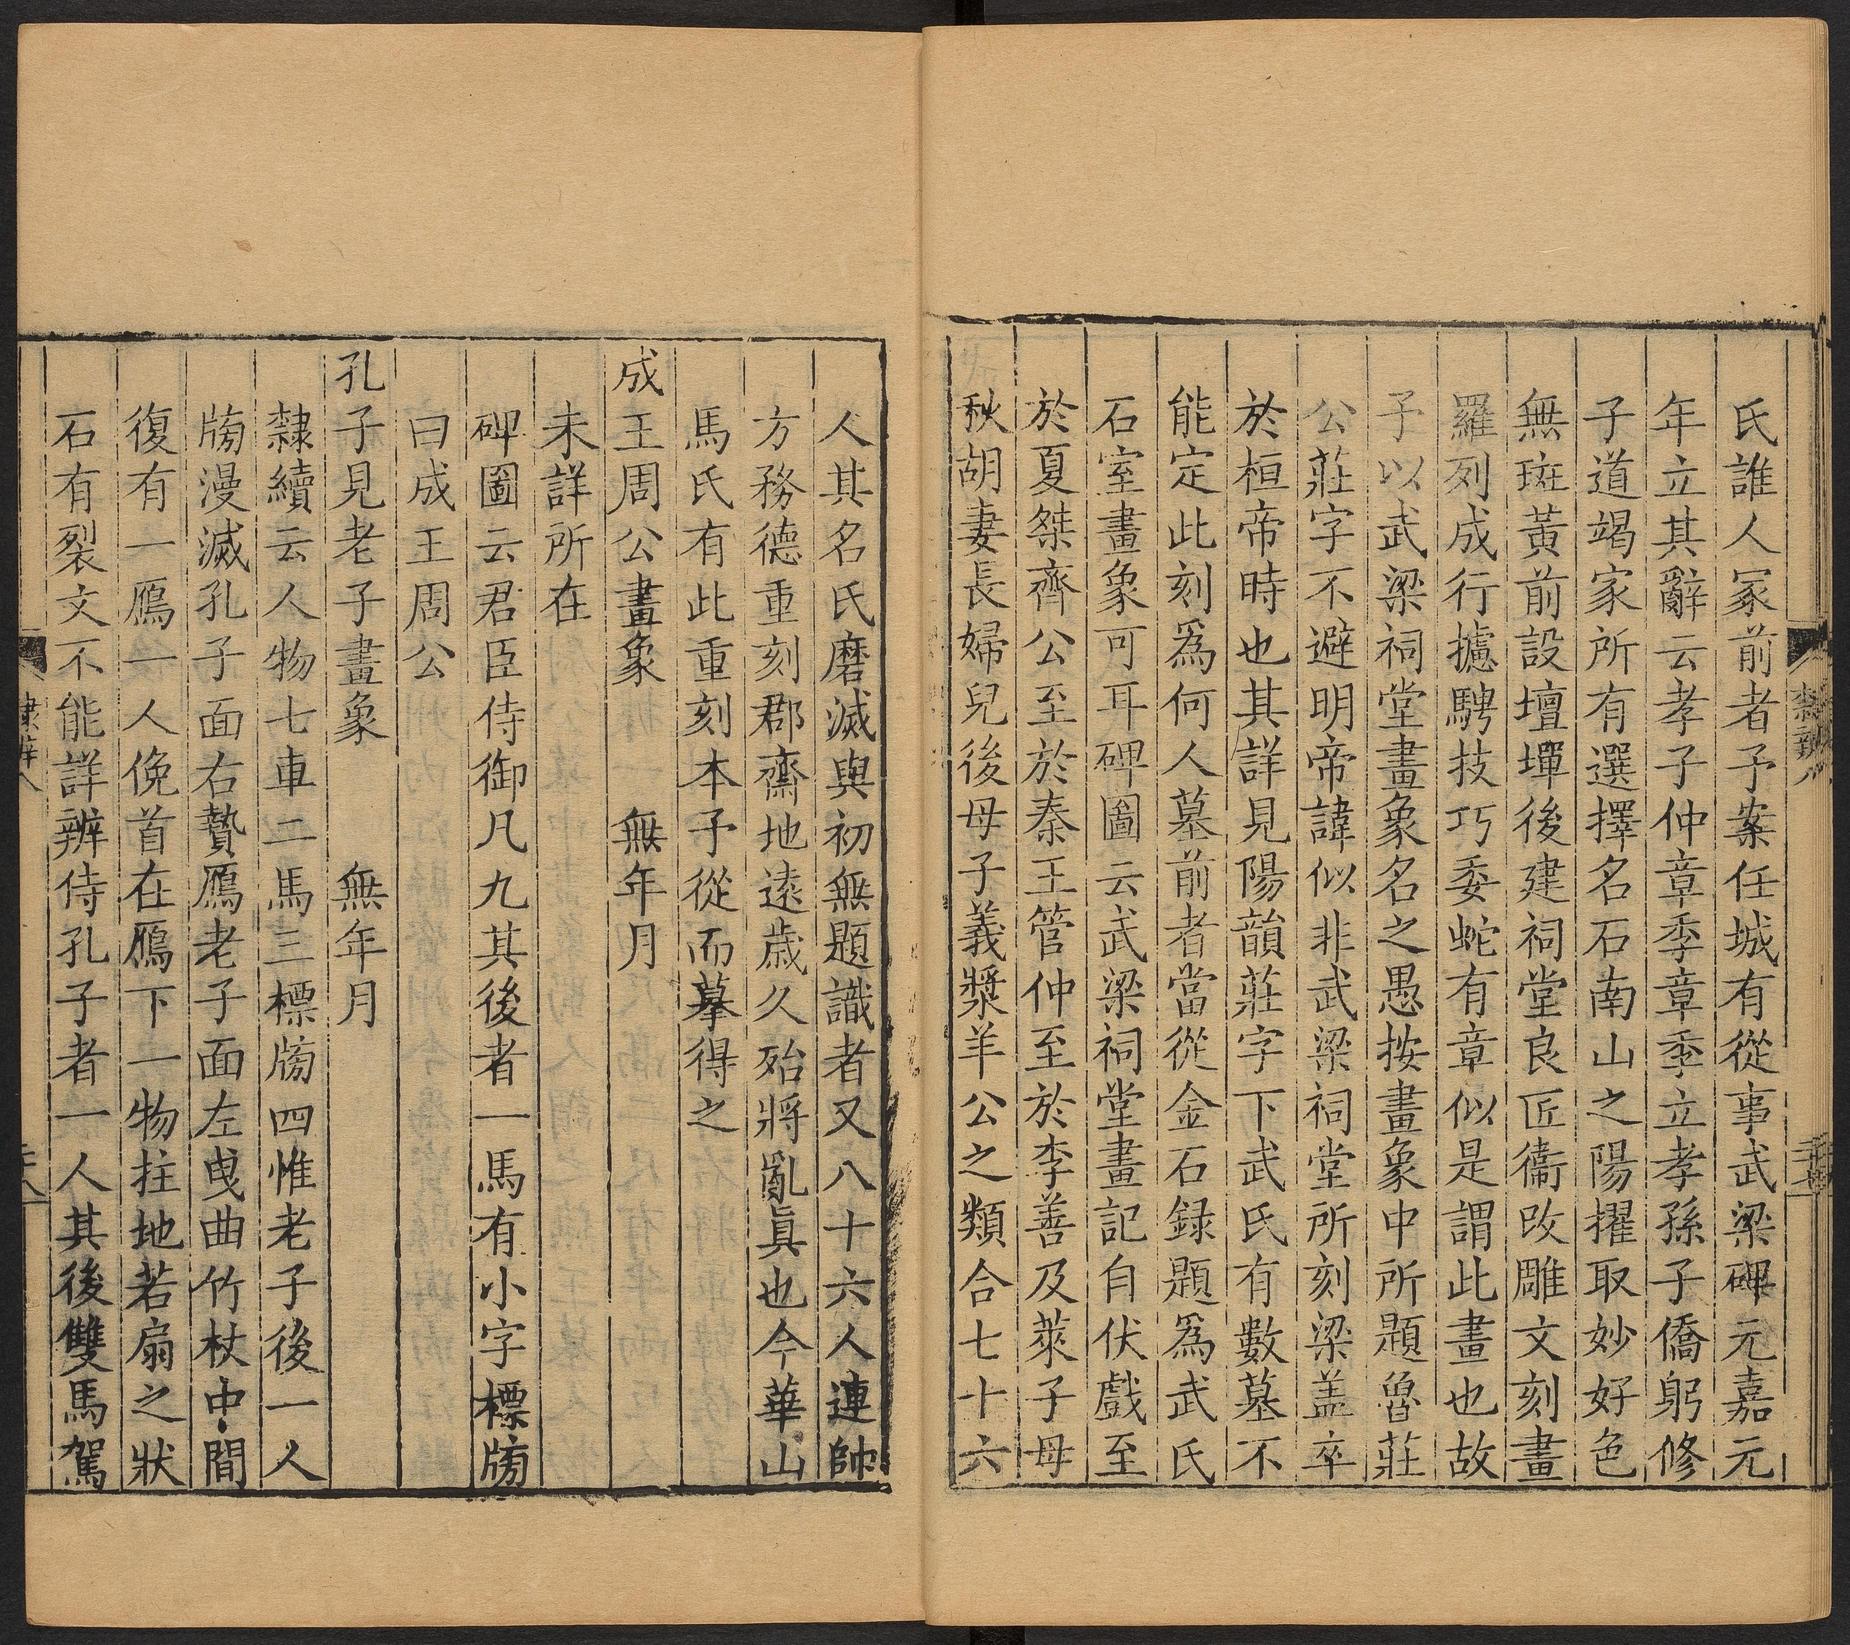 氏誰人冢前者予案任城有從事武梁碑元嘉元
年立其辭云孝子仲章季章季立孝孫子僑躬修
子道竭家所有選擇名石南山之陽擢取妙好色
無斑黃前設壇墠後建祠堂良匠衞改雕文刻畫
羅列成行攄騁技巧委蛇有章似是謂此畫也故
予以武梁祠堂畫象名之愚按畫象中所題魯莊
公莊字不避明帝諱似非武梁祠堂所刻梁盖卒
於桓帝時也其詳見陽韻莊字下武氏有數墓不
能定此刻爲何人墓前者當從金石録題爲武氏
石室畫象可耳碑圖云武梁祠堂畫記自伏戲至
於夏桀齊公至於秦王管仲至於李善及萊子母
秋胡妻長婦兒後母子義漿羊公之類合七十六
人其名氏磨滅與初無題識者又八十六人連帥
方務德重刻郡齋地遠歲久殆將亂眞也今華山
馬氏有此重刻本予從而摹得之
成王周公畫象 無年月
未詳所在
碑圖云君臣侍御凡九其後者一馬有小字標牓
曰成王周公
孔子見老子畫象 無年月
隸續云人物七車二馬三標牓四惟老子後一人
牓漫滅孔子面右贄鴈老子面左曳曲竹杖中間
復有一鴈一人俛首在鴈下一物拄地若扇之狀
石有裂文不能詳辨侍孔子者一人其後雙馬駕
隸辨八